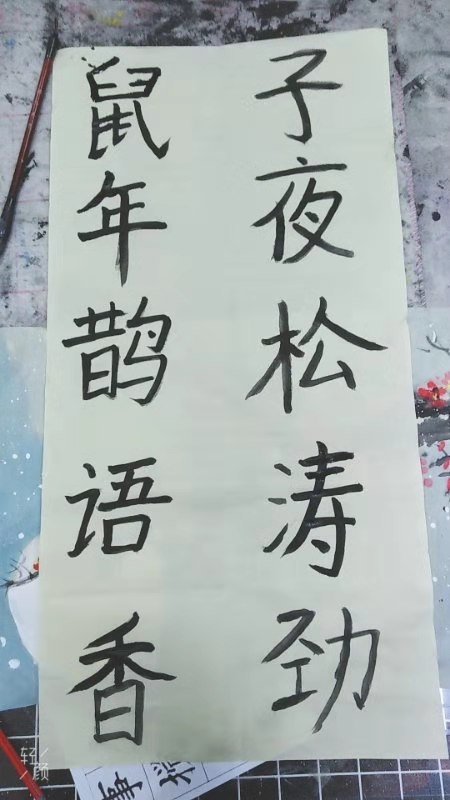 子夜松涛劲
鼠年鹊语香
轻颜